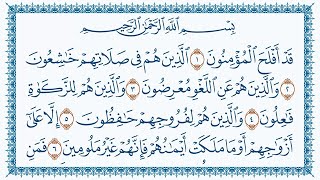 بِسْمِ ٱللَّهِ ٱلرَّحْمَٰنِ ٱلرَّحِيمِ
قَدْ أَفْلَحَ ٱلْمُؤْمِنُونَ ١ ٱلَّذِينَ هُمْ فِى صَلَاتِهِمْ خَٰشِعُونَ
٢ وَٱلَّذِينَ هُمْ عَنِ ٱللَّغْوِ مُعْرِضُونَ ٣ وَٱلَّذِينَ هُمْ لِلزَّكَوٰةِ
فَٰعِلُونَ ٤ وَٱلَّذِينَ هُمْ لِفُرُوجِهِمْ حَٰفِظُونَ ٥ إِلَّا عَلَىٰٓ
أَزْوَٰجِهِمْ أَوْ مَا مَلَكَتْ أَيْمَٰنُهُمْ فَإِنَّهُمْ غَيْرُ مَلُومِينَ ٦ فَمَنِ